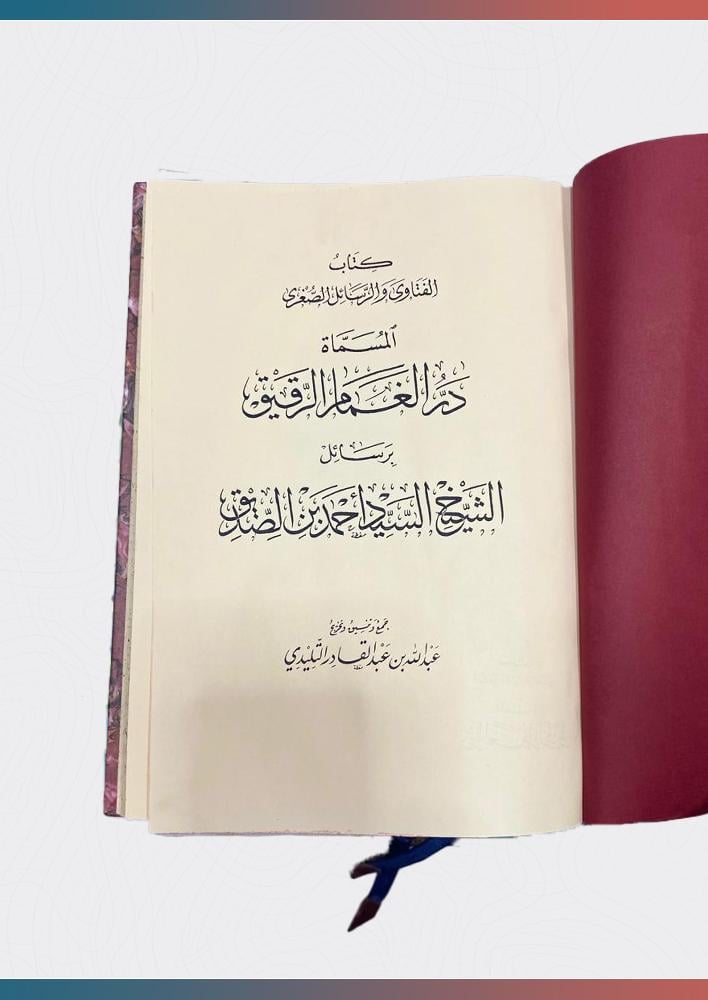 كِتَابُ
الفَتَاوَى وَالرَّسَائِل الصُّغرى
المُسَمَّاة
دَرُّ الغَمَام الرَّقِيق
بِرَسَائِل
الشَّيخ السَّيِّد أحمَد بن الصِّدِّيق
جمع وتنسيق وتخريج
عَبد الله بن عَبد القَادر التَّلِيدي